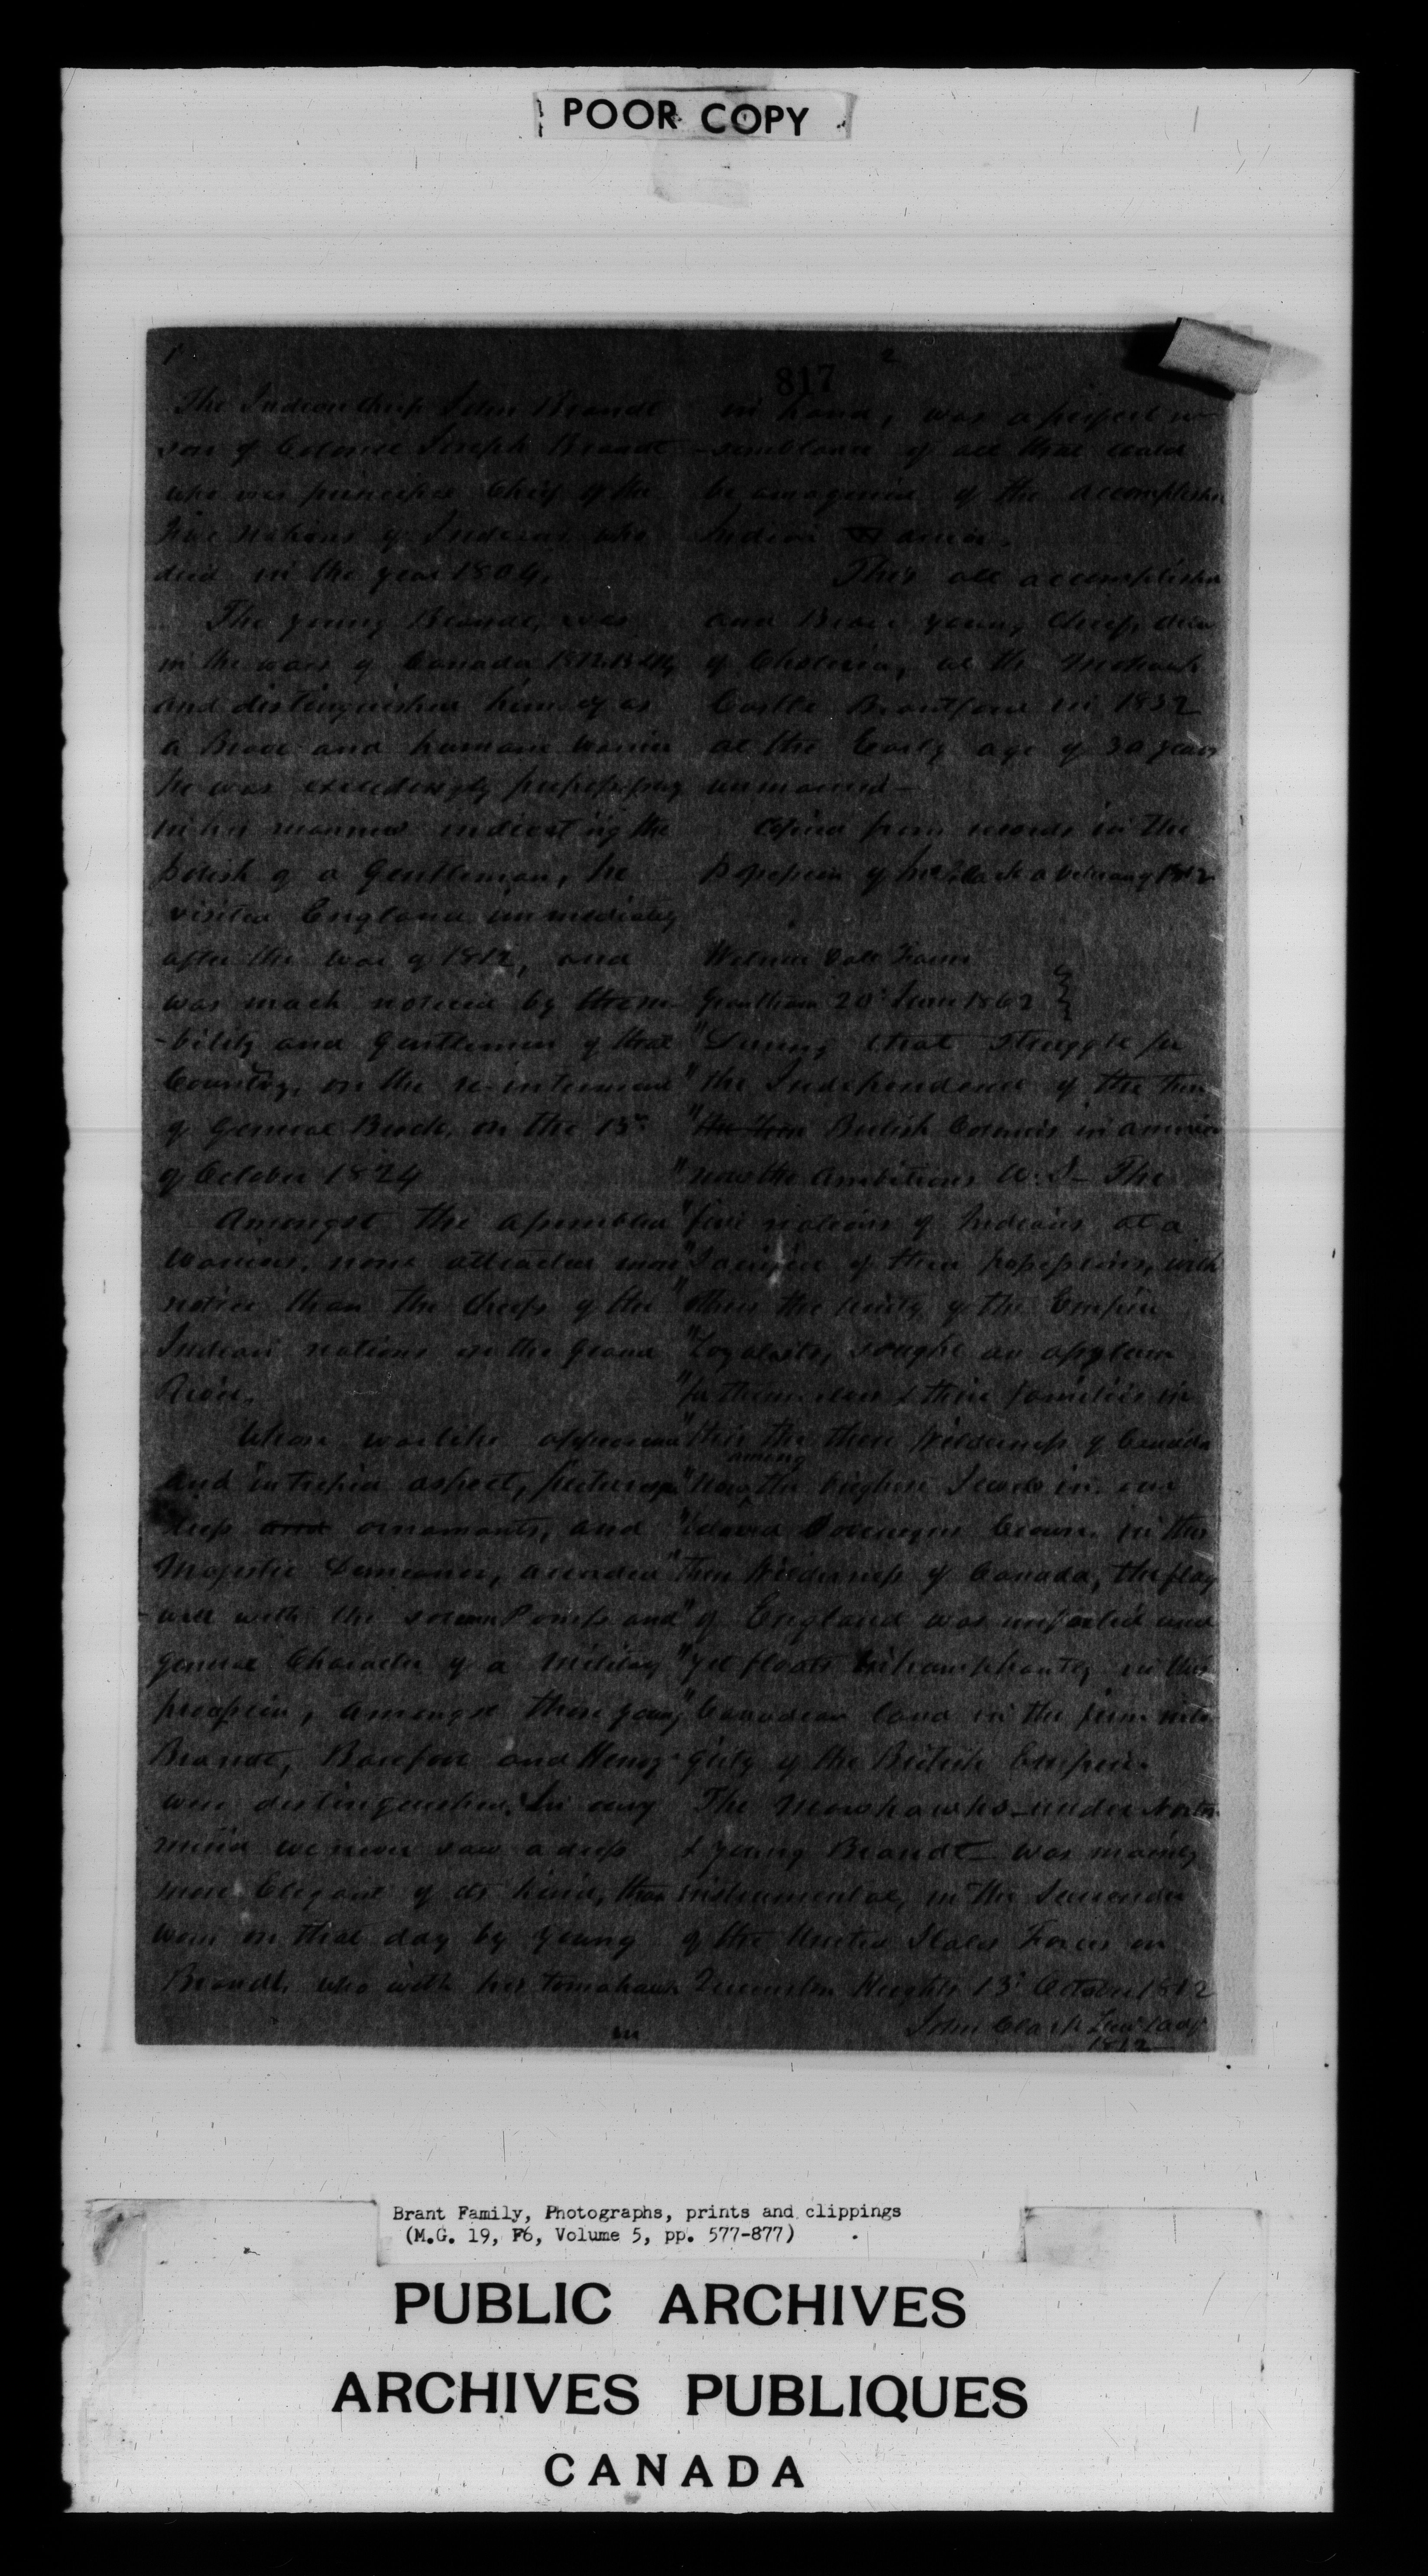 POOR COPY
1
817
The Indian Chief John Brandt
son of Colonel Joseph Brandt
who was principal Chief of the
five nations of Indians who
died in the year 1804,
The young Brandt, was
in the wars of Canada 1812.13 &14
and distinguished himself as
a Brave and humane warrior
he was exceedingly prepossessing
in his manners indicating the
polish of a Gentleman, he
visited England immediately
after the war of 1812, and
was much noticed by the no-
-bility and Gentlemen of that
Country, on the re-interment
of General Brock, on the 13th
of October 1824
Amongst the assembled
warriors, none attracted more
notice than the Chiefs of the
Indian nations on the Grand
River.
Whose warlike appearance
and intrepid aspect, picturesque
dress and ornaments, and
Majestic Demeanor, accorded
-well with the solemn Pomp and
general Character of a Military
procession, amongst these young
Brandt, Barefoot and Henry
were distinguished, In any
mind we never saw a dress
more Elegant of its kind, than
worn on that day by young
Brandt, who with his tomahawk
in
2
in hand, was a perfect re-
-semblance of all that could
be imagined of the accomplished
Indian Warrior.
This all accomplished
and Brave young Chief, died
of Cholera, at the Mohawk
Castle Brantford in 1832
at the Early age of 30 years
unmarried —
Copied from records in the
possession of Clark a veteran of 1812
Walnut Dale Farm
Grantham 20th June 1862
"During that struggle for
"the Independence of the then
"the then British Colonies in America
"now the Ambitious U.S — The
"five nations of Indians at a
"Sacrifice of their possessions, with
"others the unity of the Empire
"Loyalists, sought an asylum
"for themselves & their families in
"this the then Wilderness of Canada
among
"Now, the brightest Jewels in our
"beloved Sovereigns Crown. in this
"then Wilderness of Canada, the flag
"of England was unfurled and
"yet floats triumphantly in this
"Canadian land in the firm inte-
"grity of the British Empire.
The Mowhawks — under Norton
& young Brandt — was mainly
instrumental, in the Surrender
of the United States Forces on
Queenston Heights 13th October 1812
John Clark
1812 —
Brant Family, Photographs, prints and clippings
(M.G. 19, F6, Volume 5, pp. 577-877)
PUBLIC ARCHIVES
ARCHIVES PUBLIQUES
CANADA